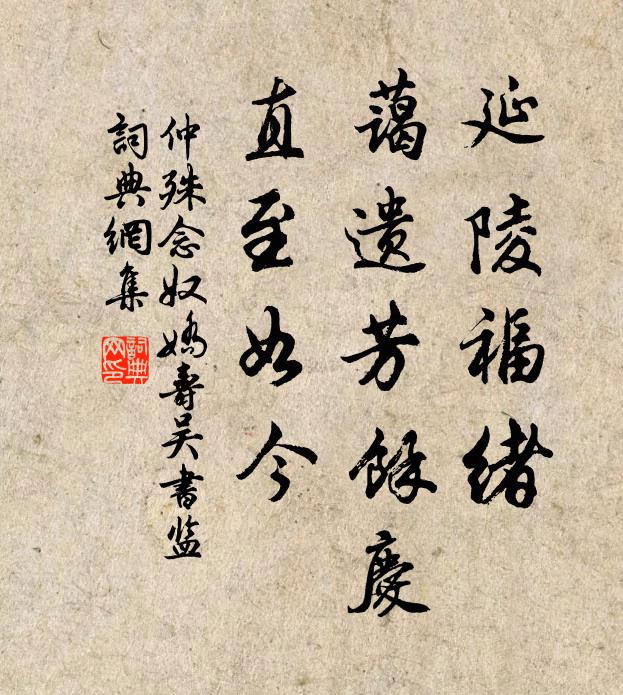 延陵福绪
蔼遗芳馀慶
直至如今
仲殊念奴嬌壽吴書监
詞典網集
詞典網印